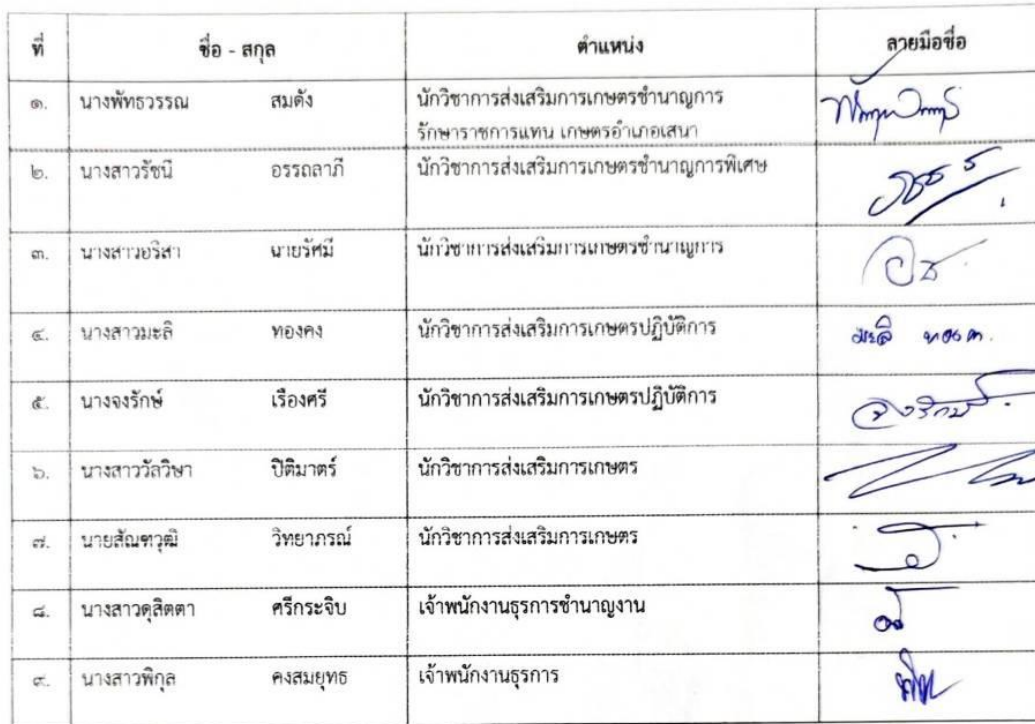 ที่ ชื่อ - สกุล ตำแหน่ง ลายมือชื่อ
๑. นางพัทธวรรณ สมดัง นักวิชาการส่งเสริมการเกษตรชำนาญการ
รักษาราชการแทน เกษตรอำเภอเสนา
๒. นางสาวรัชนี อรรถลาภี นักวิชาการส่งเสริมการเกษตรชำนาญการพิเศษ
๓. นางสาวอริสา ฉายรัศมี นักวิชาการส่งเสริมการเกษตรชำนาญการ
๔. นางสาวมะลิ ทองคง นักวิชาการส่งเสริมการเกษตรปฏิบัติการ มะลิ
๕. นางจงรักษ์ เรืองศรี นักวิชาการส่งเสริมการเกษตรปฏิบัติการ จงรักษ์
๖. นางสาววัลวิษา ปิติมาตร์ นักวิชาการส่งเสริมการเกษตร
๗. นายสัณฑวุฒิ วิทยาภรณ์ นักวิชาการส่งเสริมการเกษตร
๘. นางสาวดุสิตตา ศรีกระจิบ เจ้าพนักงานธุรการชำนาญงาน
๙. นางสาวพิกุล คงสมยุทธ เจ้าพนักงานธุรการ